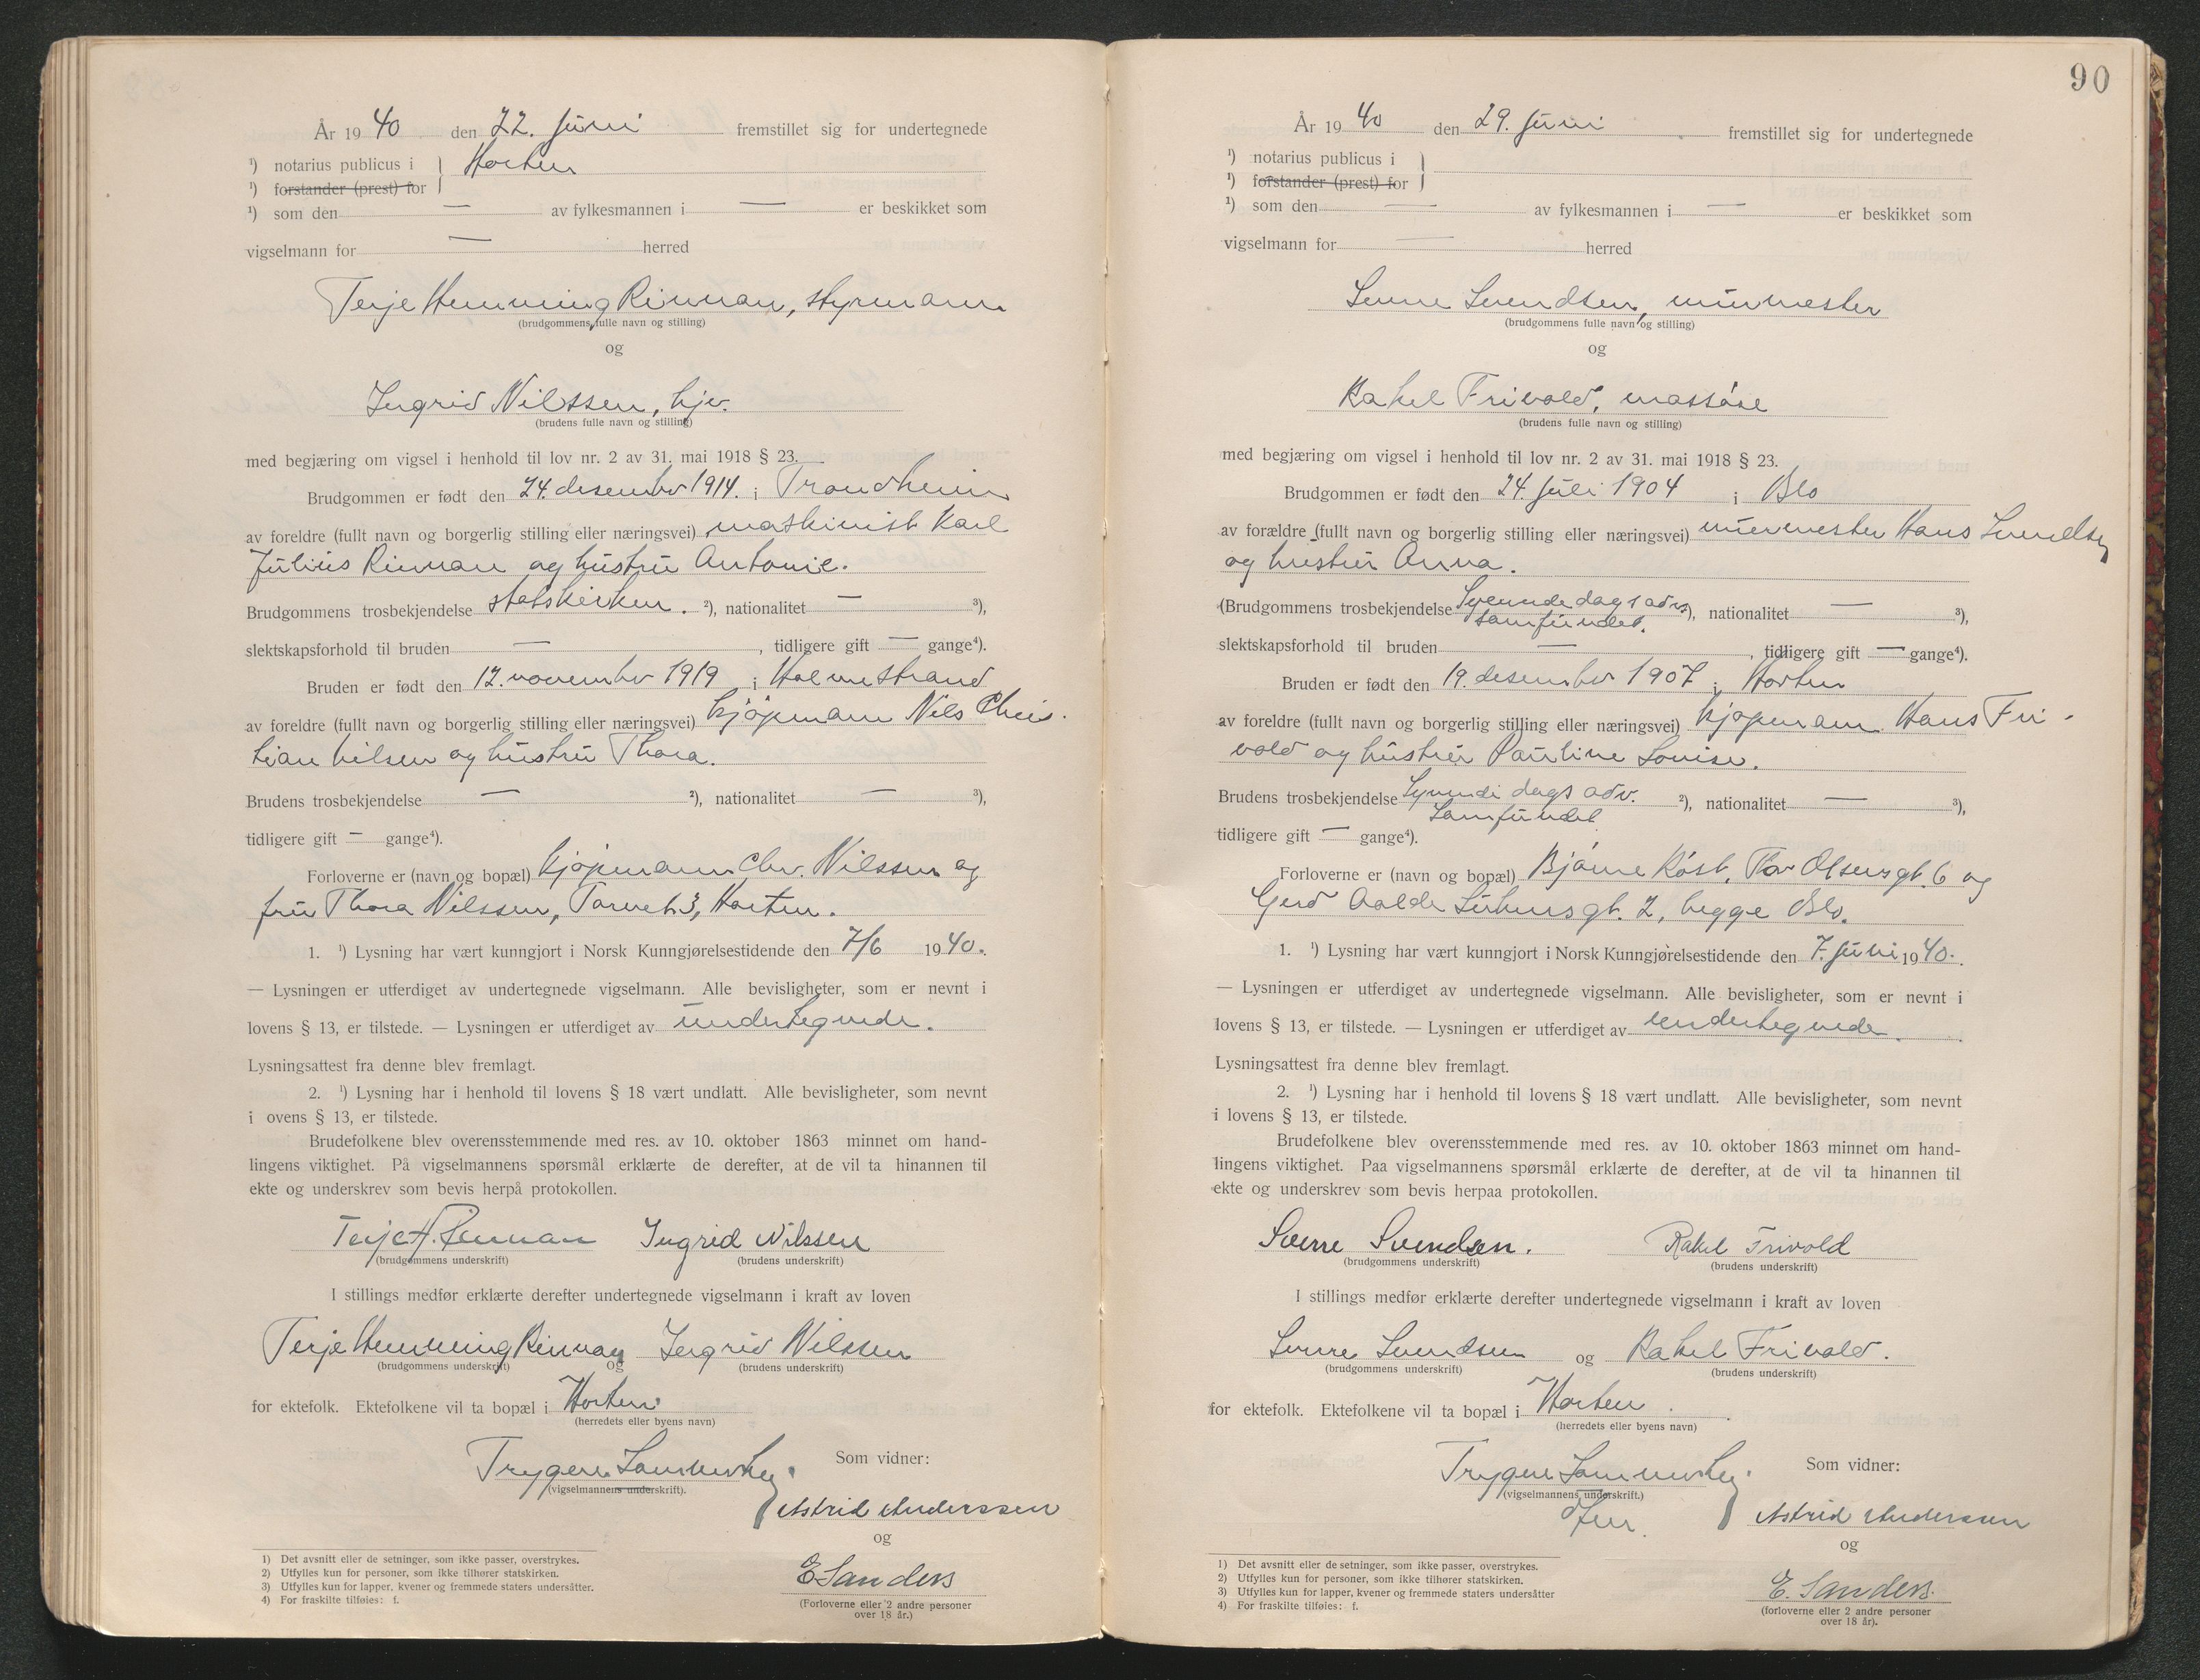 År 1940 den 22. juni fremstillet sig for undertegnede
¹) notarius publicus i } Horten
¹) forstander (prest) for
¹) som den — av fylkesmannen i — er beskikket som
vigselmann for — herred
Terje Hemming Rinnan, styrmann
(brudgommens fulle navn og stilling)
og
Ingrid Nilssen, hjv.
(brudens fulle navn og stilling)
med begjæring om vigsel i henhold til lov nr. 2 av 31. mai 1918 § 23.
Brudgommen er født den 24. desember 1914. i Trondheim
av foreldre (fullt navn og borgerlig stilling eller næringsvei) maskinist Karl
Julius Rinnan og hustru Antonie.
Brudgommens trosbekjendelse statskirken. ²), nationalitet — ³),
slektskapsforhold til bruden —, tidligere gift — gange⁴).
Bruden er født den 12. november 1919 i Holmestrand
av foreldre (fullt navn og borgerlig stilling eller næringsvei) kjøpmann Nils Chris-
tian Nilsen og hustru Thora.
Brudens trosbekjendelse — ²), nationalitet — ³),
tidligere gift — gange⁴).
Forloverne er (navn og bopæl) kjøpmann Chr. Nilssen og
fru Thora Nilssen, Torvet 3, Horten.
1. ¹) Lysning har vært kunngjort i Norsk Kunngjørelsestidende den 7/6 1940.
— Lysningen er utferdiget av undertegnede vigselmann. Alle bevisligheter, som er nevnt i
lovens § 13, er tilstede. — Lysningen er utferdiget av undertegnede.
Lysningsattest fra denne blev fremlagt.
2. ¹) Lysning har i henhold til lovens § 18 vært undlatt. Alle bevisligheter, som nevnt
i ovens § 13, er tilstede.
Brudefolkene blev overensstemmende med res. av 10. oktober 1863 minnet om hand-
lingens viktighet. På vigselmannens spørsmål erklærte de derefter, at de vil ta hinannen til
ekte og underskrev som bevis herpå protokollen.
Terje H. Rinnan Ingrid Nilssen
(brudgommens underskrift) (brudens underskrift)
I stillings medfør erklærte derefter undertegnede vigselmann i kraft av loven
Terje Hemming Rinnan og Ingrid Nilssen
(brudgommens underskrift) (brudens underskrift)
for ektefolk. Ektefolkene vil ta bopæl i Horten.
(herredets eller byens navn)
Trygve
(vigselmannens underskrift).
Som vidner:
Astrid Anderssen
og
E Sanders
(Forloverne eller 2 andre personer
over 18 år.)
1) Det avsnitt eller de setninger, som ikke passer, overstrykes.
2) Utfylles kun for personer, som ikke tilhører statskirken.
3) Utfylles kun for lapper, kvener og fremmede staters undersåtter.
4) For fraskilte tilføies: f.
90
År 1940 den 29. juni fremstillet sig for undertegnede
¹) notarius publicus i }
¹) forstander (prest) for
¹) som den — av fylkesmannen i — er beskikket som
vigselmann for — herred
Sverre Svendsen, murmester
(brudgommens fulle navn og stilling)
og
Rakel Frivold, massøse
(brudens fulle navn og stilling)
med begjæring om vigsel i henhold til lov nr. 2 av 31. mai 1918 § 23.
Brudgommen er født den 24. juli 1904 i Oslo
av forældre (fullt navn og borgerlig stilling eller næringsvei) murmester Hans Svendsen
og hustru Anna.
(Brudgommens trosbekjendelse Syvende dags adv. ²), nationalitet — ³),
samfundet.
slektskapsforhold til bruden —, tidligere gift — gange⁴).
Bruden er født den 19. desember 1907 i Horten
av foreldre (fullt navn og borgerlig stilling eller næringsvei) kjøpmann Hans Fri-
vold og hustru Pauline Louise.
Brudens trosbekjendelse Syvende dags adv. ²), nationalitet — ³),
Samfundet
tidligere gift — gange⁴).
Forloverne er (navn og bopæl) Bjarne Røst, Thv Olsensgt. 6 og
Gerd gt. 2, begge Oslo.
1. ¹) Lysning har vært kunngjort i Norsk Kunngjørelsestidende den 7. juni 1940.
— Lysningen er utferdiget av undertegnede vigselmann. Alle bevisligheter, som er nevnt i
lovens § 13, er tilstede. — Lysningen er utferdiget av undertegnede.
Lysningsattest fra denne blev fremlagt.
2. ¹) Lysning har i henhold til lovens § 18 vært undlatt. Alle bevisligheter, som nevnt
i lovens § 13, er tilstede.
Brudefolkene blev overensstemmende med res. av 10. oktober 1863 minnet om hand-
lingens viktighet. Paa vigselmannens spørsmål erklærte de derefter, at de vil ta hinannen til
ekte og underskrev som bevis herpaa protokollen.
Sverre Svendsen. Rakel Frivold
(brudgommens underskrift) (brudens underskrift)
I stillings medfør erklærte derefter undertegnede vigselmann i kraft av loven
Sverre Svendsen og Rakel Frivold.
(brudgommens underskrift) (brudens underskrift)
for ektefolk. Ektefolkene vil ta bopæl i Horten.
(herredets eller byens navn)
Trygve
(vigselmannens underskrift.)
Som vidner:
Astrid Anderssen
og
E. Sanders.
(forloverne eller 2 andre personer
over 18 år).
1) Det avsnitt eller de setninger, som ikke passer, overstrykes.
2) Utfylles kun for personer, som ikke tilhører statskirken.
3) Utfylles kun for lapper, kvener og fremmede staters undersåtter
4) For fraskilte tilføies: f.